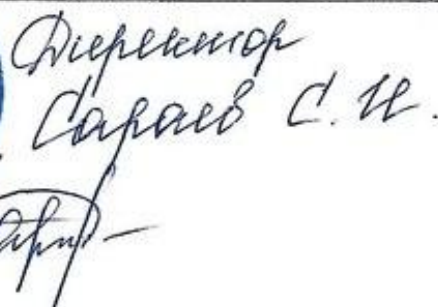 Директор
Сараев С. И.